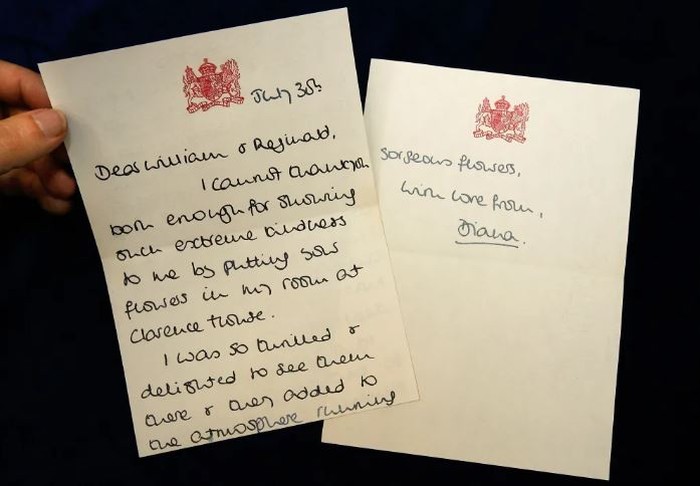 July 30th
Dear William & Reginald,
I cannot thank you
both enough for showing
such extreme kindness
to me by putting
flowers in my room at
Clarence House.
I was so thrilled &
delighted to see them
there & they added to
the atmosphere running
gorgeous flowers,
with love from,
Diana.